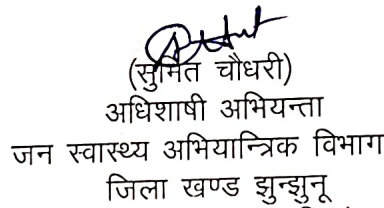 (सुमित चौधरी)
अधिशाषी अभियन्ता
जन स्वास्थ्य अभियान्त्रिक विभाग
जिला खण्ड झुन्झुनू